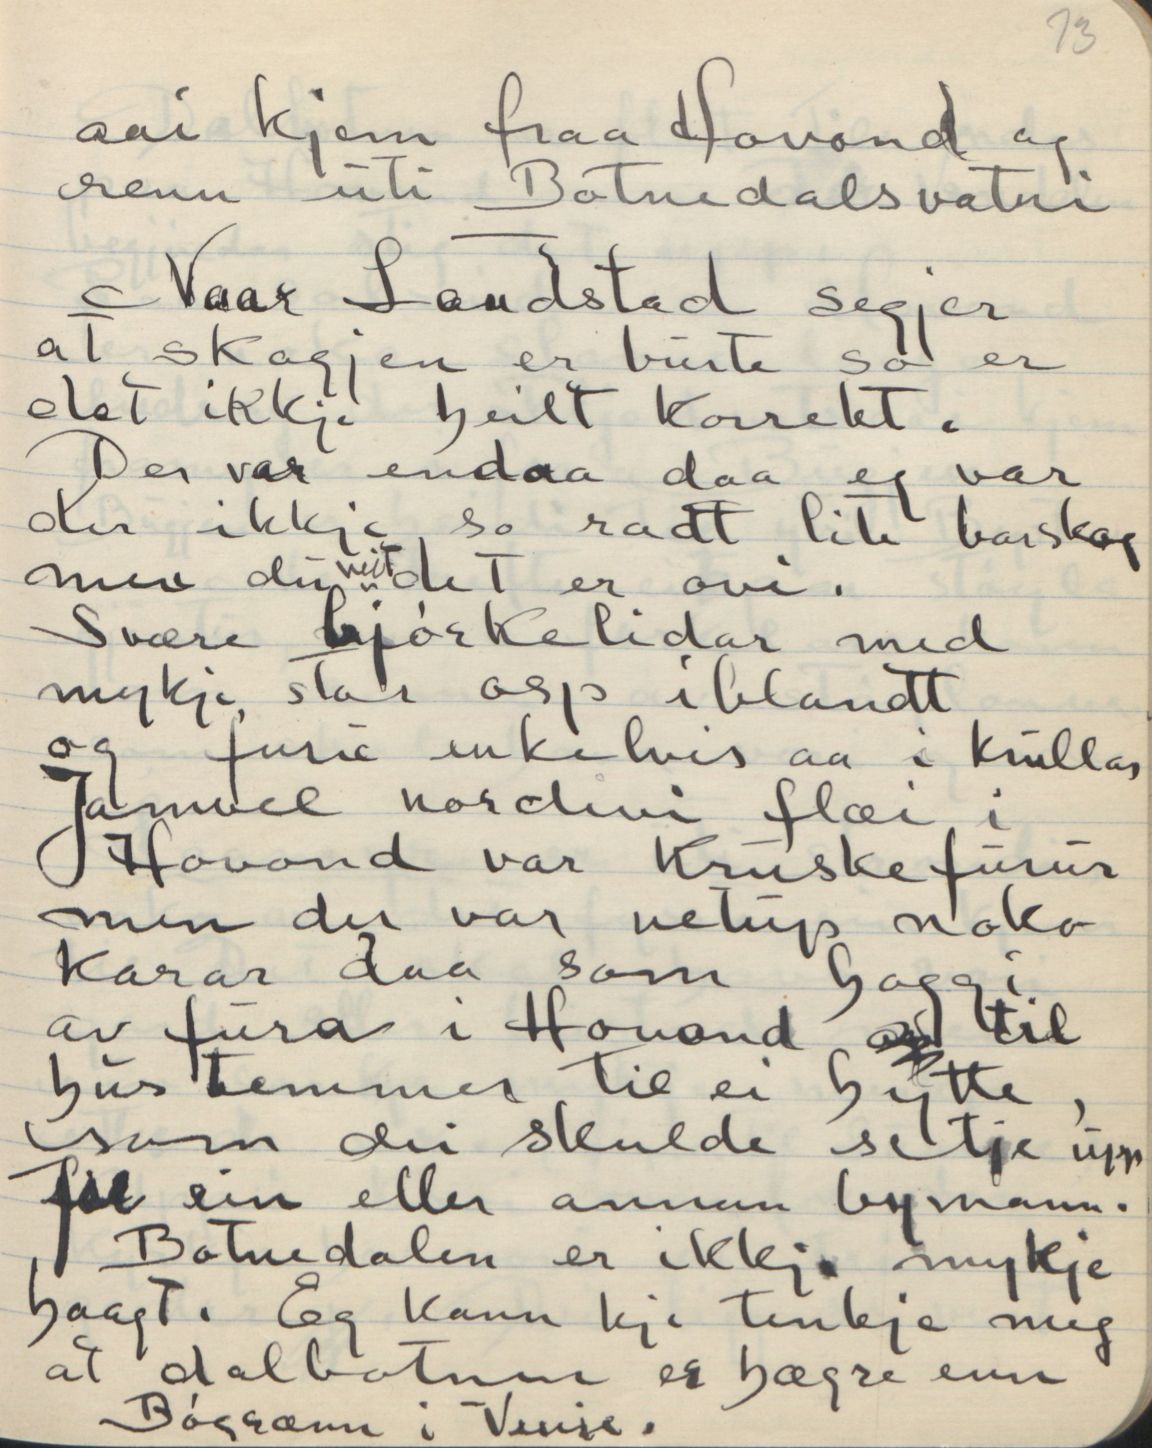 73
aai kjem fraa Hovond og
renn uti Botnedalsvatni
Naar Landstad segjer
at skogjen er burte so er
det ikkje heilt korrekt.
Der var endaa daa eg var
der ikkje so radt lite barskog
men du veit det er ovi.
Svære bjørkelidar med
mykje stor osp iblandt
og furie enkelvis aa i krullar
Jamvel nordivi flæi i
Hovond var Kruskefurur
men der var netup noko
karar daa som hoggi
av fura i Hovond til
hustemmer til ei hytte,
som dei skulde setje upp
fwr ein eller annan bymann.
Botnedalen er ikkje mykje
haagt. Eg kann kje tenkje meg
at dalbotnen er hægre enn
Bøgrænn i Vinje.